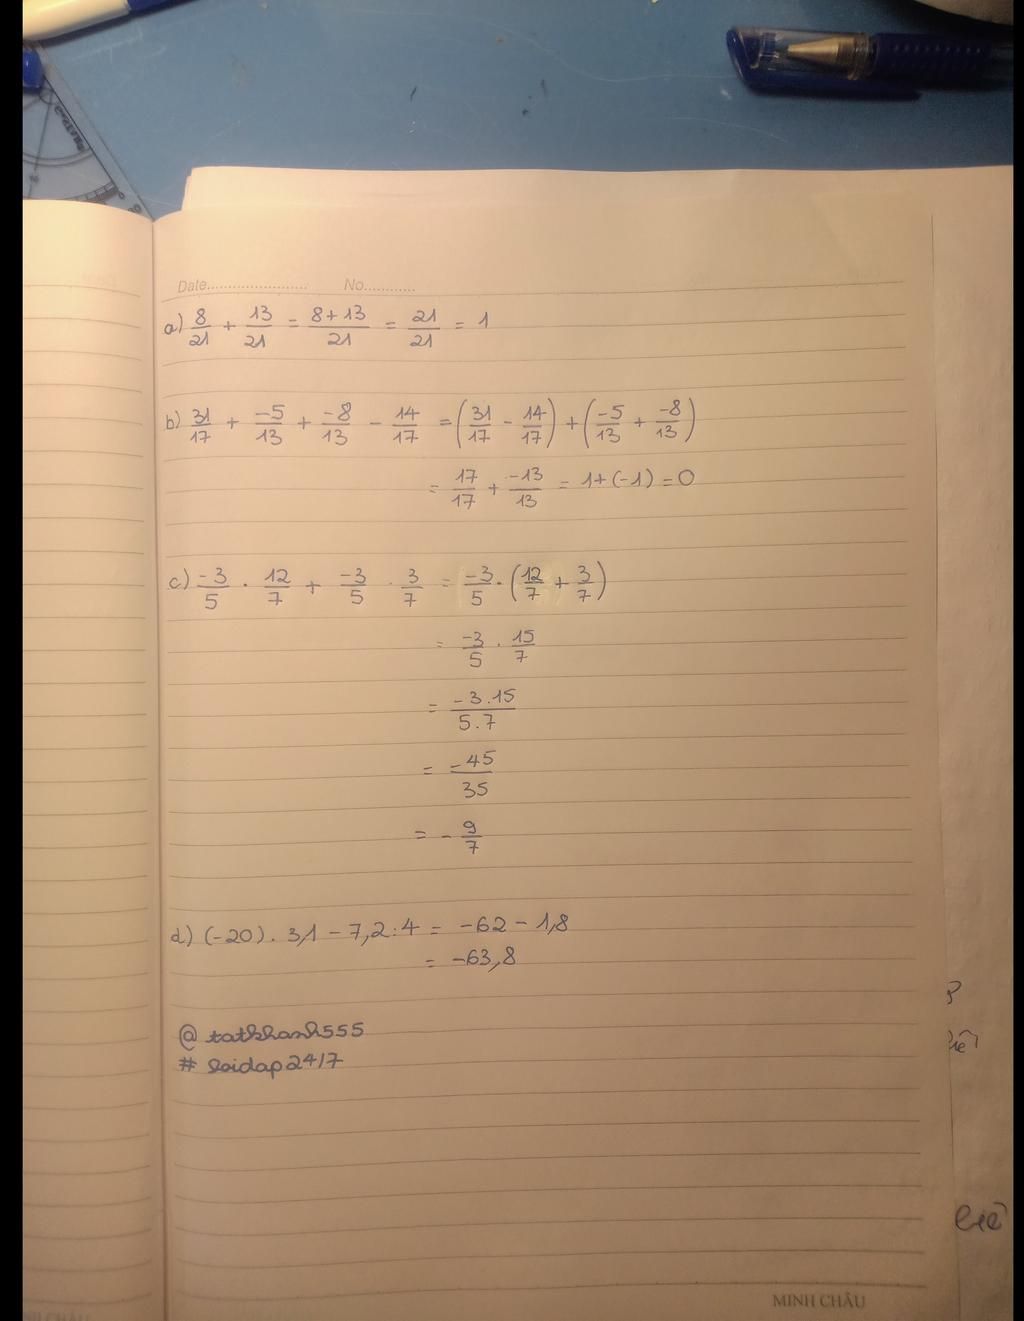 Date...................... No............
a) 8/21 + 13/21 = (8+13)/21 = 21/21 = 1
b) 31/17 + -5/13 + -8/13 - 14/17 = (31/17 - 14/17) + (-5/13 + -8/13)
= 17/17 + -13/13 = 1+(-1) = 0
c) -3/5 . 12/7 + -3/5 . 3/7 = -3/5 . (12/7 + 3/7)
= -3/5 . 15/7
= (-3.15)/(5.7)
= -45/35
= - 9/7
d) (-20). 3,1 - 7,2:4 = -62 - 1,8
= -63,8
@ tatkhanh555
# loidap24/7
MINH CHÂU